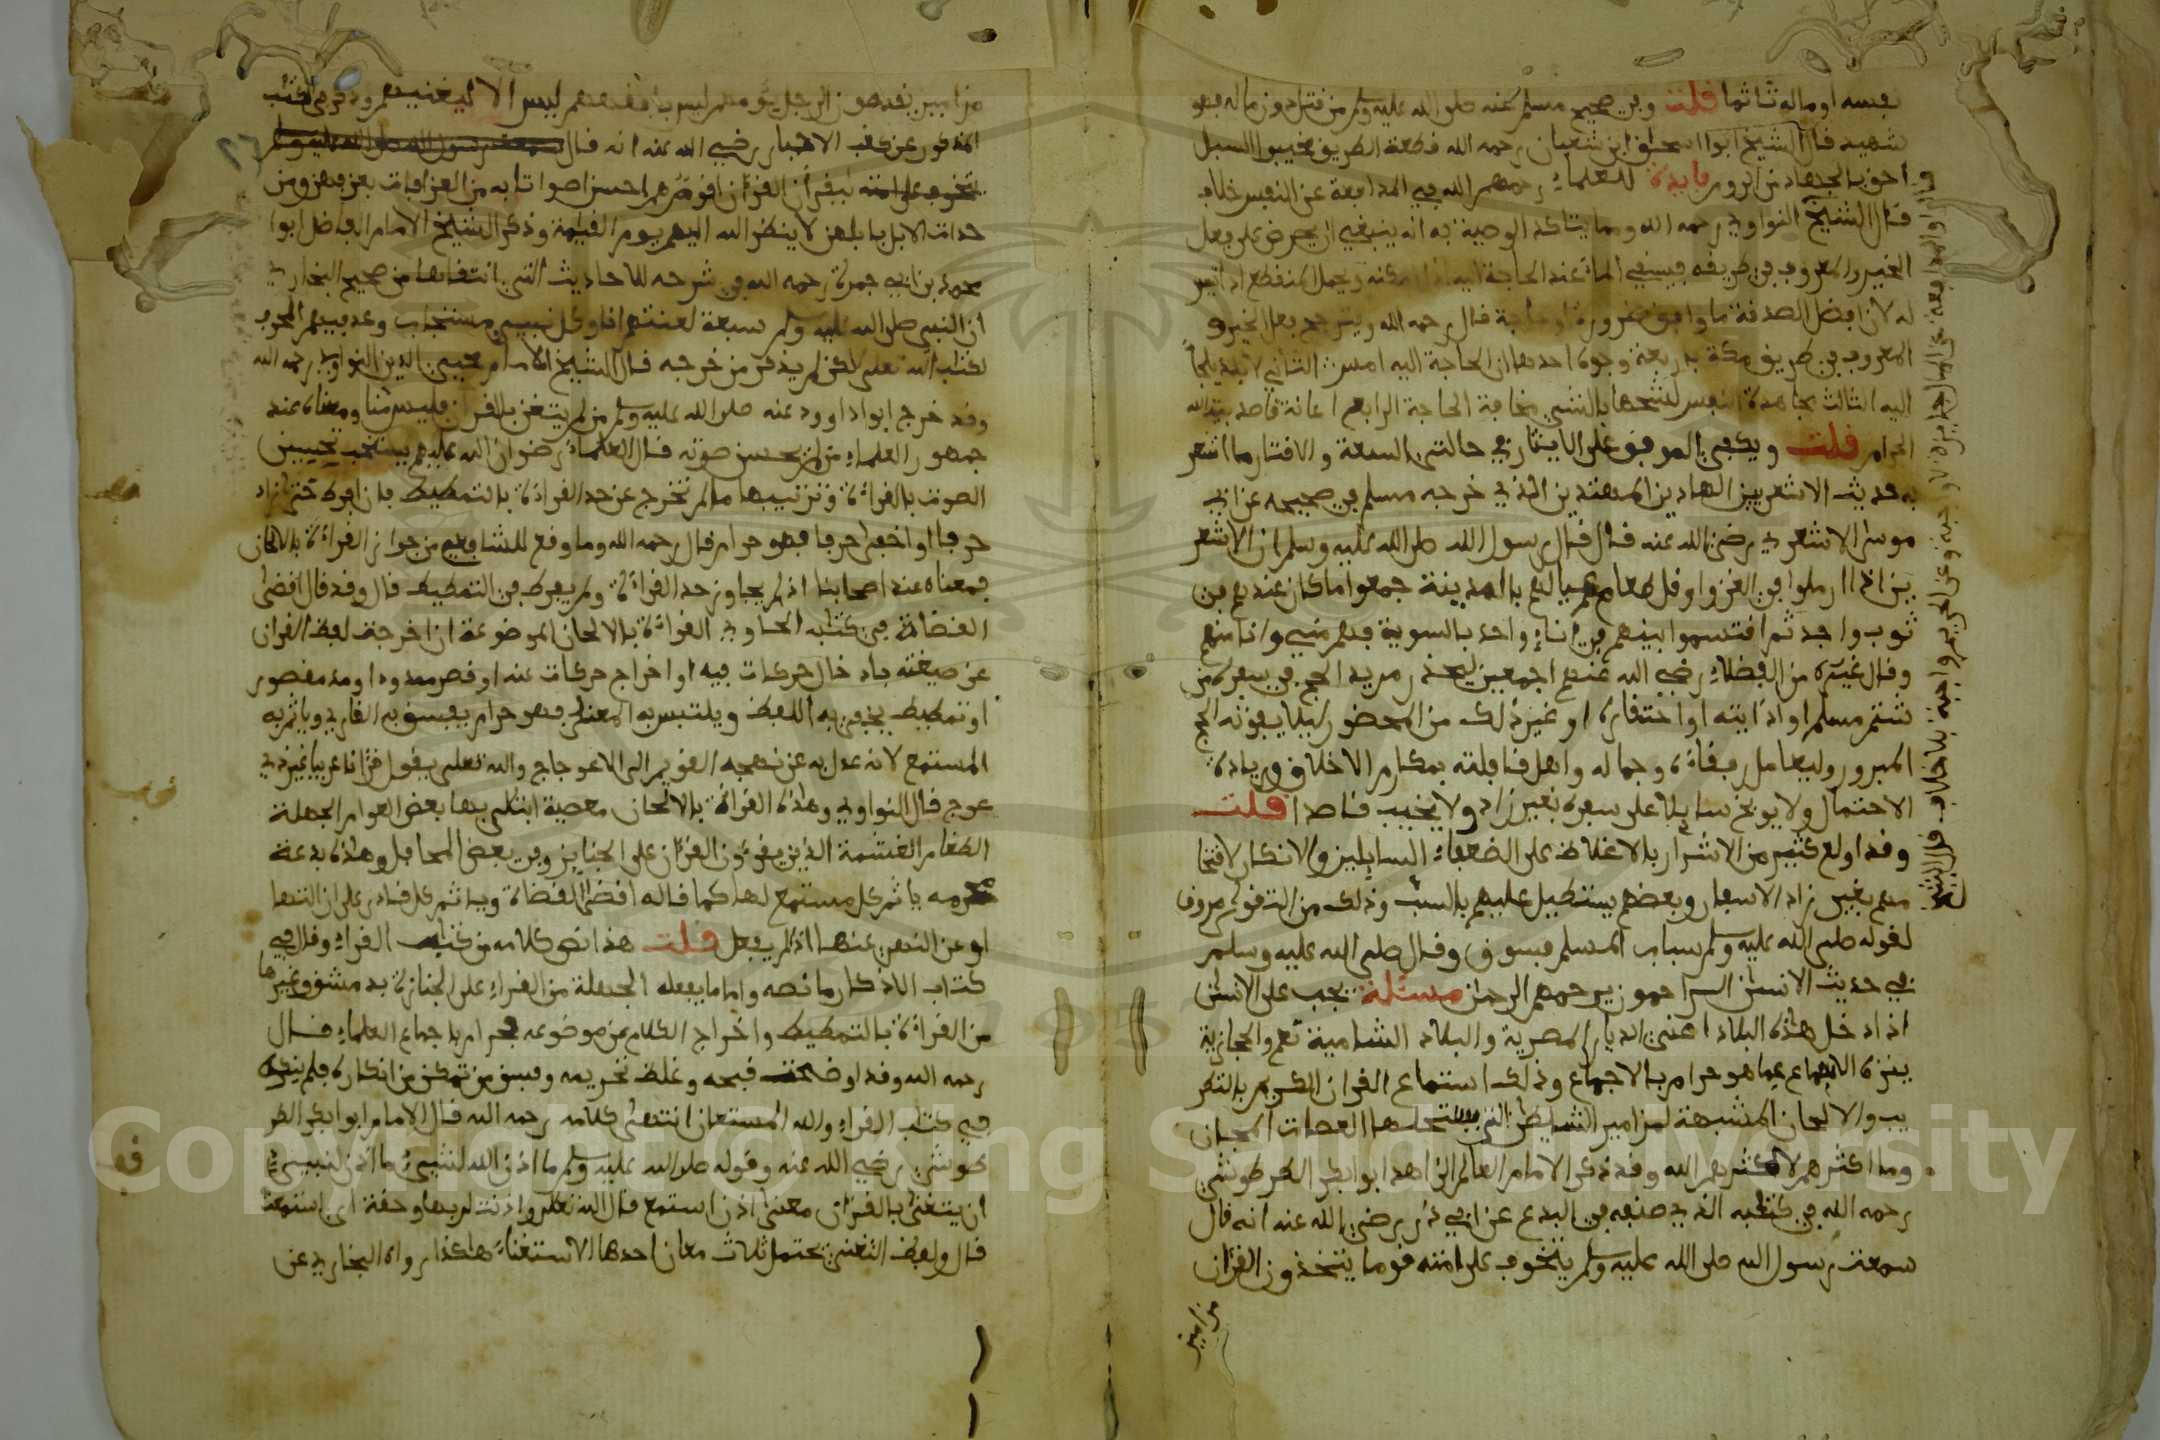 نفسه او ماله تاثما قلت وفي صحيح مسلم عنه صلى الله عليه وسلم من قتل دون ماله فهو
شهيد قال الشيخ ابوا اسحاق ابن شعبان رحمه الله قطعة الطريق مخيبوا السبل
احق بالجهاد من الروم فايدة للعلماء رحمهم الله في المدافعة عن النفس خلاف
قال الشيخ النواوي رحمه الله ومما يتاكد الوصية به انه ينبغي ان يحرص على فعل
الخير والمعروف في طريقه فيسقي الماء عند الحاجة اليه اذا امكنه ويحمل المنقطع اذا تيسر
له لان افضل الصدقة ما وافق ضرورة او حاجة قال رحمه الله ويترجح فعل الخير و
المعروف في طريق مكة باربعة وجوه احدها ان الحاجة اليه امس الثاني لا بد يلجأ
اليه الثالث مجاهدة النفس لشحها بالشيء مخافة الحاجة الرابع اعانة قاصد بيت الله
الحرام قلت ويكفي الموفق على الايثار في حالتي السعة والاقتار ما اشعر
به حديث الاشعريين الهادين المهتدين الذي خرجه مسلم في صحيحه عن ابي
موسى الاشعري رضي الله عنه قال قال رسول الله صلى الله عليه وسلم ان الاشعر
يين اذا ارملوا في الغزو او قل طعام عيالهم بالمدينة جمعوا ما كان عندهم في
ثوب واحد ثم اقتسموا بينهم في اناء واحد بالسوية فهم مني وانا منهم
وقال غيره من الفضلاء رضي الله عنهم اجمعين ليحذر مريد الحج في سفره من
شتم مسلم او اذايته او احتقاره او غير ذلك من المحضور ليلا يفوته الحج
المبرور وليعامل رفقاءه وجماله واهل قافلته بمكارم الاخلاق وزيادة
الاحتمال ولا يوبخ سايلا على سفره بغير زاد ولا يخيب قاصدا قلت
وقد اولع كثير من الاشرار بالاغلاظ على الضعفاء السايلين والانكار لاقتحا
مهم بغير زاد الاسفار وبعضهم يستطيل عليهم بالسب وذلك من الفسوق
لقوله صلى الله عليه وسلم سباب المسلم فسوق وقال صلى الله عليه وسلم
في حديث الانسان الراحمون يرحمهم الرحمن مسئلة يجب على الانسان
اذا دخل هذه البلاد اعني الديار المصرية والبلاد الشامية نعم والحجازية
ينزه الاسماع عما هو حرام بالاجماع وذلك استماع القران الكريم بالتطر
يب والالحان المشبهة لمزامير الشيطان التي ينتحلها العصات المجان
وما اكثرهم لا كثرهم الله وقد ذكر الامام العالم الزاهد ابوا بكر الطرطوشي
رحمه الله في كتابه الذي صنفه في البدع عن ابي ذر رضي الله عنه انه قال
سمعت رسول الله صلى الله عليه وسلم يتخوف على امته قوما يتخذون القران
مزامير
مزامير يقدمون الرجل يؤمهم ليس بافقههم ليس الا ليغنيهم وذكر في الكتاب
المذكور عن كعب الاحبار رضي الله عنه انه قال سمعت رسول الله صلى الله عليه وسلم
يتخوف على امته ليقرأن القرءان اقوام هم احسن اصواتا به من العزافات بعزفهن ومن
حدات الابل بابلهن لا ينظر الله اليهم يوم القيامة وذكر الشيخ الامام الفاضل ابوا
محمد بن ابي جمرة رحمه الله في شرحه للاحاديث التي انتقاها من صحيح البخاري
ان النبي صلى الله عليه وسلم سبعة لعنتهم انا وكل نبي مستجاب وعد فيهم المحرف
لكتاب الله تعلى لكن لم يذكر من خرجه قال الشيخ الامام محيي الدين النواوي رحمه الله
وقد خرج ابوا داوود عنه صلى الله عليه وسلم من لم يتغن بالقران فليس منا ومعناه عند
جمهور العلماء من لم يحسن صوته قال العلماء رضوان الله عليهم يستحب تحسين
الصوت بالقراءة وتزيينها ما لم تخرج عن حد القراءة بالتمطيط فان افرط حتى زاد
حرفا او اخفى حرفا فهو حرام قال رحمه الله وما وقع للشافعي من جواز القراءة بالالحان
فمعناه عند اصحابنا اذا لم يجاوز حد القراءة ولم يفرط في التمطيط قال وقد قال اقضى
القضاة في كتابه الحاوي القراءة بالالحان الموضوعة ان اخرجت لفظ القران
عن صيغته بادخال حركات فيه او اخراج حركات عنه او قصر ممدود او مد مقصور
او تمطيط يخفى به اللفظ ويلتبس به المعنى فهو حرام يفسق به القاري وياثم به
المستمع لانه عدل به عن نهجه القويم الى الاعوجاج والله تعلى يقول قرءانا عربيا غير ذي
عوج قال النواوي وهذه القراءة بالالحان معصية ابتلي بها بعض العوام الجهلة
الطغام الغشمة الذين يقرءون القرءان على الجنايز وفي بعض المحافل وهذه بدعة
محرمة ياثم كل مستمع لها كما قاله اقضى القضاة وياثم كل قادر على ازالتها
او عن النهي عنها اذا لم يفعل قلت هذا نص كلامه من كتاب القراء وقال في
كتاب الاذكار ما نصه واما ما يفعله الجهلة من القراء على الجنازة بدمشق وغيرها
من القراءة بالتمطيط واخراج الكلام عن موضوعه فحرام باجماع العلماء قال
رحمه الله وقد اوضحت قبحه وغلظ تحريمه وفسق من تمكن من انكاره فلم ينكره
في كتاب القراء والله المستعان انتهى كلامه رحمه الله قال الامام ابوا بكر الطر
طوشي رضي الله عنه وقوله صلى الله عليه وسلم ما اذن الله لشيء ما اذن لنبي
ان يتغنى بالقران معنى اذن استمع قال الله تعلى واذنت لربها وحقت اي استمعت
قال ولفظ التغني يحتمل ثلاث معان احدها الاستغناء هكذا رواه البخاري عن